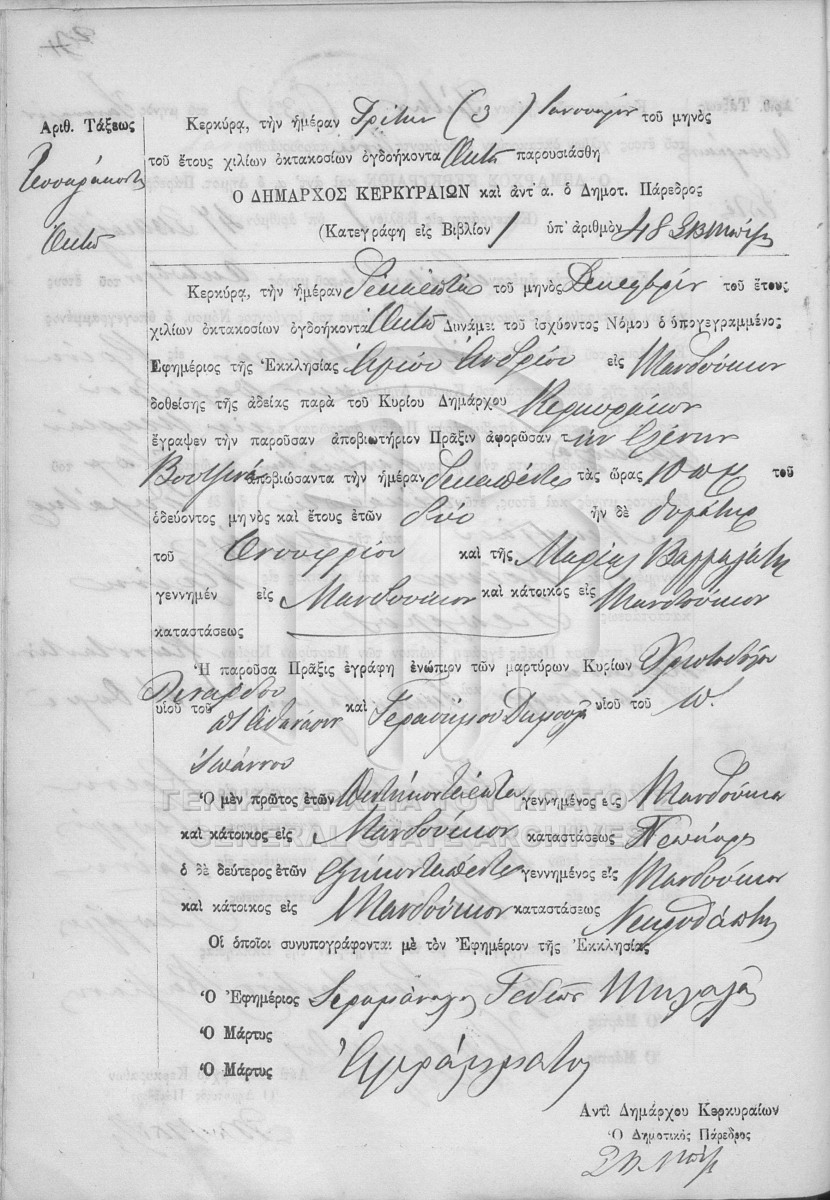 Ἀριθ. Τάξεως
Τεσσαράκοντα
Ὀκτώ
Κερκύρα, τὴν ἡμέραν Τρίτην (3) Ἰανουαρίου τοῦ μηνὸς
τοῦ ἔτους χιλίων ὀκτακοσίων ὀγδοήκοντα Ὀκτώ παρουσιάσθη
Ὁ ΔΗΜΑΡΧΟΣ ΚΕΡΚΥΡΑΙΩΝ καὶ ἀντ' α. ὁ Δημοτ. Πάρεδρος
(Κατεγράφη εἰς Βιβλίον 1 ὑπ' ἀριθμὸν 48
Κερκύρα, τὴν ἡμέραν Δεκαεπτά τοῦ μηνὸς Δεκεμβρίου τοῦ ἔτους
χιλίων ὀκτακοσίων ὀγδοήκοντα Ὀκτώ Δυνάμει τοῦ ἰσχύοντος Νόμου ὁ ὑπογεγραμμένος
Ἐφημέριος τῆς Ἐκκλησίας Ἁγίου Ἀνδρέου εἰς Μανδούκιον
δοθείσης τῆς ἀδείας παρὰ τοῦ Κυρίου Δημάρχου Κερκυραίων
ἔγραψεν τὴν παροῦσαν ἀποβιωτήριον Πρᾶξιν ἀφορῶσαν τὴν Ἑλένην
ἀποβιώσαντα τὴν ἡμέραν Δεκαπέντε τὰς ὥρας 10 τοῦ
ὁδεύοντος μηνὸς καὶ ἔτους ἐτῶν δύο ἦν δὲ θυγάτηρ
τοῦ Ὀνουφρίου καὶ τῆς Μαρίας
γεννημέν εἰς Μανδούκιον καὶ κάτοικος εἰς Μανδούκιον
καταστάσεως
Ἡ παροῦσα Πρᾶξις ἐγράφη ἐνώπιον τῶν μαρτύρων Κυρίων Χριστοδούλου
υἱοῦ τοῦ π. Ἀθανασίου καὶ Γερασίμου υἱοῦ τοῦ π.
Ἰωάννου
Ὁ μὲν πρῶτος ἐτῶν γεννημένος εἰς Μανδούκιον
καὶ κάτοικος εἰς Μανδούκιον καταστάσεως
ὁ δὲ δεύτερος ἐτῶν ἑξήκοντα πέντε γεννημένος εἰς Μανδούκιον
καὶ κάτοικος εἰς Μανδούκιον καταστάσεως Νεκροθάπτης
Οἱ ὁποῖοι συνυπογράφονται μὲ τὸν Ἐφημέριον τῆς Ἐκκλησίας
Ὁ Ἐφημέριος Ἱερομόναχος Γεδεών
Ὁ Μάρτυς
Ὁ Μάρτυς Ἀγράμματος
Ἀντὶ Δημάρχου Κερκυραίων
Ὁ Δημοτικὸς Πάρεδρος
ΓΕΝΙΚΑ ΑΡΧΕΙΑ ΤΟΥ ΚΡΑΤΟΥΣ
GENERAL STATE ARCHIVES